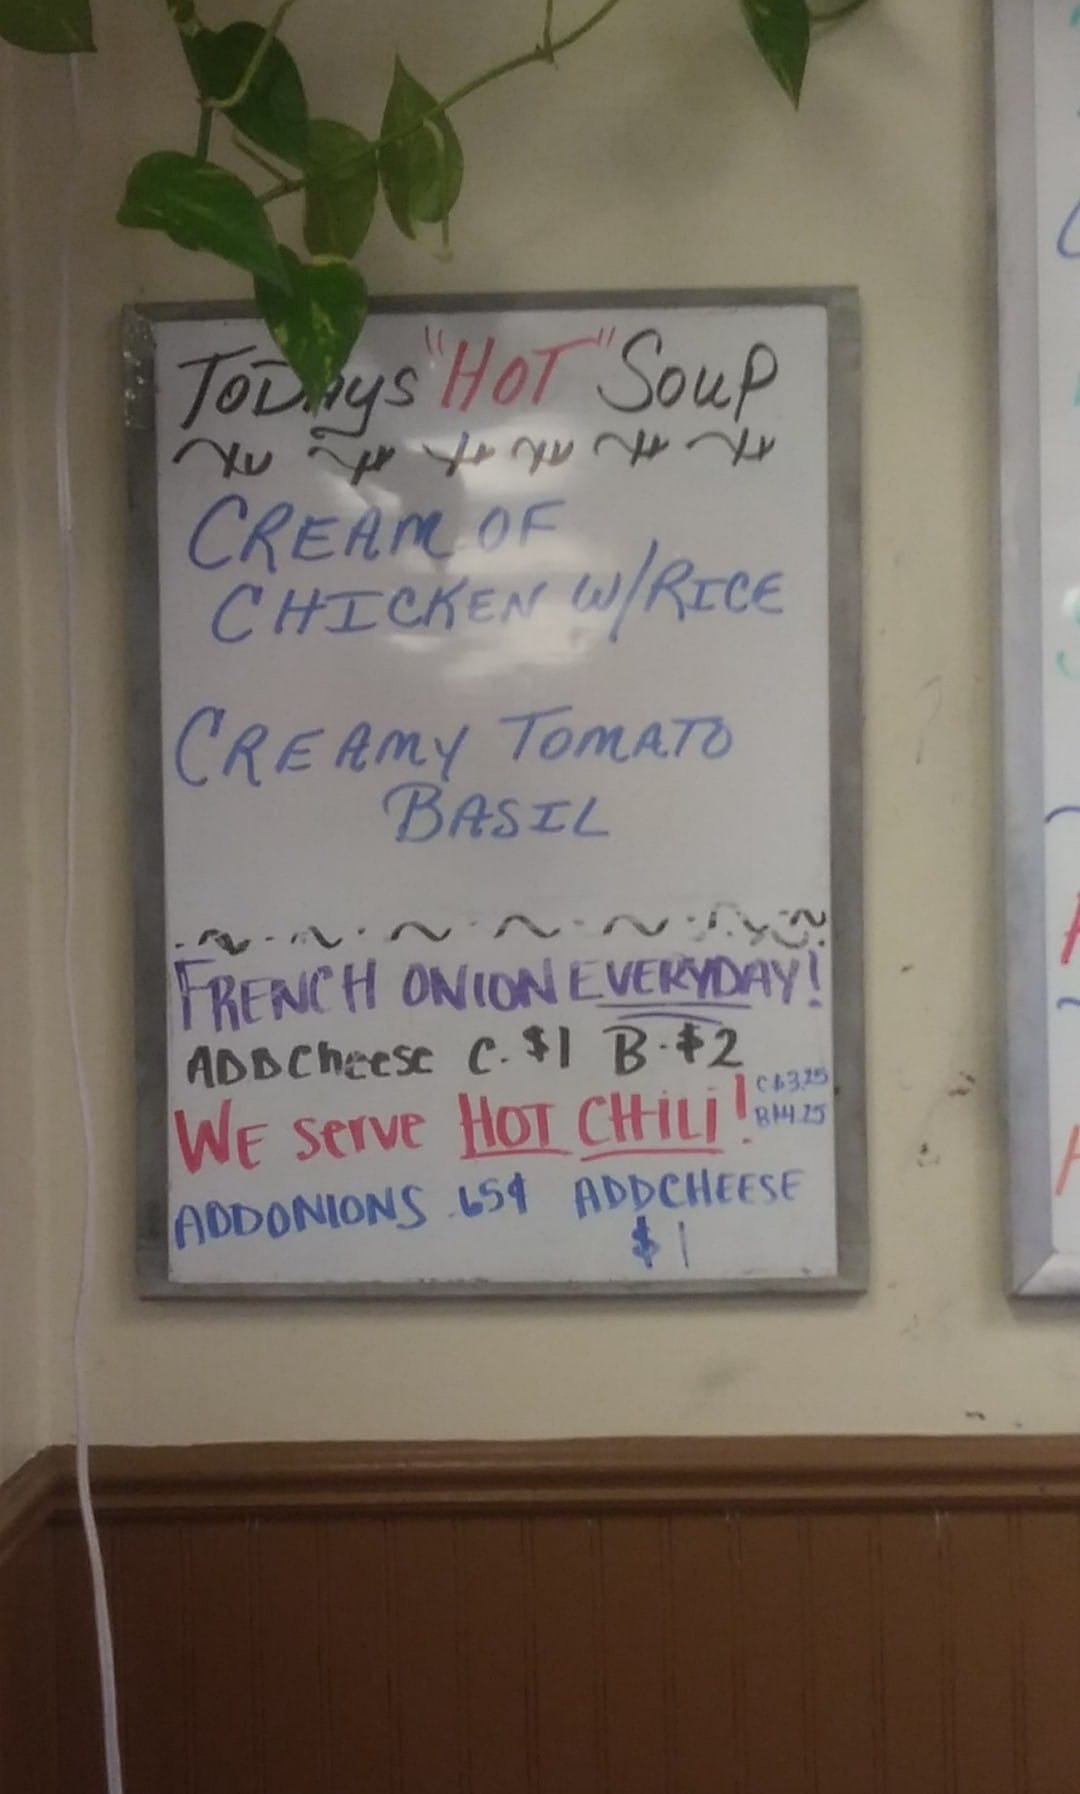 TODAYS "HOT" SOUP
CREAM OF
CHICKEN W/RICE
CREAMY TOMATO
BASIL
FRENCH ONION EVERYDAY!
ADD CHeese C. $1 B. $2
WE serve HOT CHiLi!
C $3.25
B $4.25
ADD ONIONS .65¢ ADD CHEESE
$1